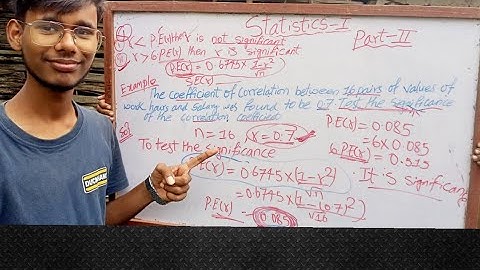 Statistics-I
Part-II
< P.E(r) then r is not significant
r > 6 P.E(r) then r is significant
P.E(r) = 0.6745 × 1-r²
√n
S.E(r)
Example:
The coefficient of correlation between 16 pairs of values of
work hours and salary was found to be 0.7. Test the significance
of the correlation coefficient
Sol
n = 16
r = 0.7
To test the significance
P.E(r) = 0.6745 × (1-r²)
√n
= 0.6745 × (1-(0.7)²)
√16
P.E(r) = 0.085
P.E(r) = 0.085
= 6×0.085
6 P.E(r) = 0.515
It is significant
DUCHAM